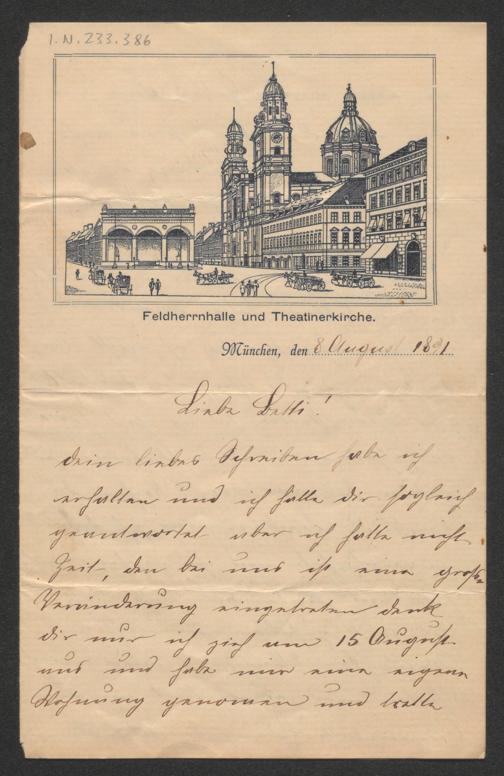 I.N. 233.386
Feldherrnhalle und Theatinerkirche.
München, den 8 August 1891
Liebe Betti!
dein liebes Schreiben habe ich
erhalten und ich hätte dir sogleich
geantwortet aber ich hatte nicht
Zeit, den bei uns ist eine große
Veränderung eingetreten denk
dir nur ich zieh am 15 August
aus und habe mir eine eigene
Wohnung genomen und